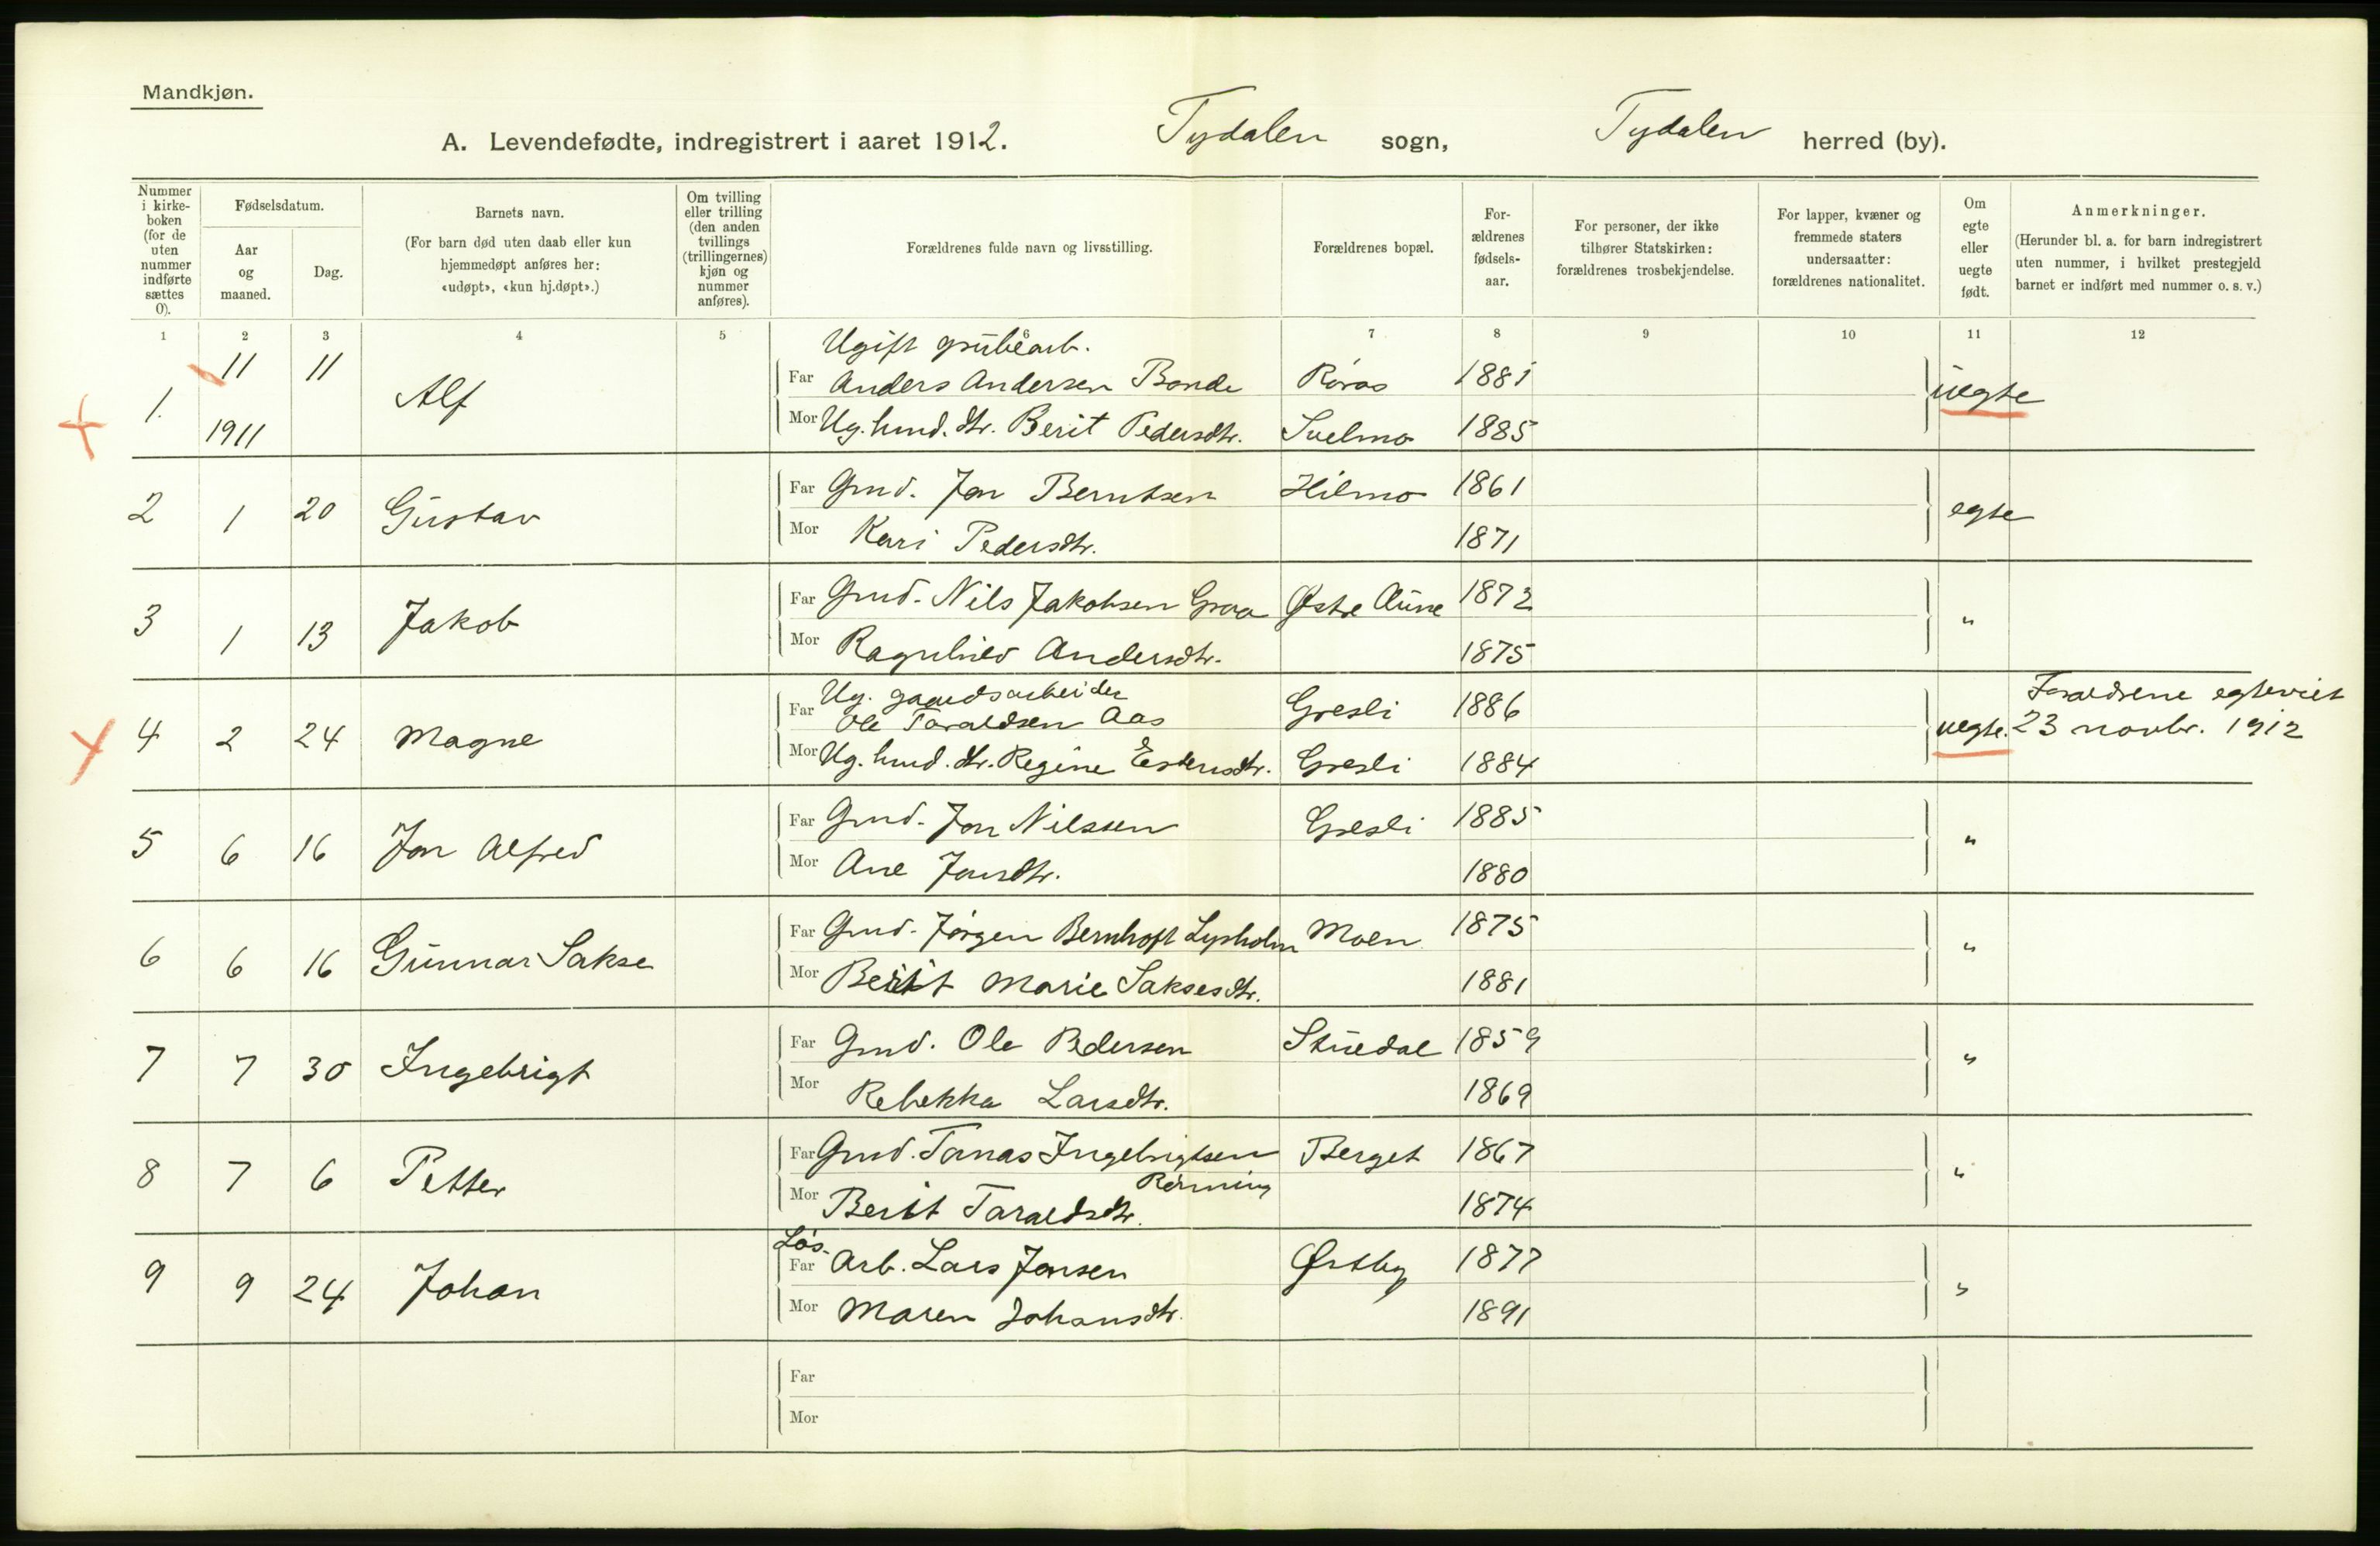 Mandkjøn.
A. Levendefødte, indregistrert i aaret 1912. Tydalen sogn, Tydalen herred (by).
Nummer i kirke-boken (for de uten nummer indførte sættes 0).
Fødselsdatum.
Aar og maaned.
Dag.
Barnets navn.
(For barn død uten daab eller kun hjemmedøpt anføres her: «udøpt», «kun hj.døpt».)
Om tvilling eller trilling (den anden tvillings (trillingernes) kjøn og nummer anføres).
Forældrenes fulde navn og livsstilling.
Forældrenes bopæl.
For-ældrenes fødsels-aar.
For personer, der ikke tilhører Statskirken: forældrenes trosbekjendelse.
For lapper, kvæner og fremmede staters undersaatter: forældrenes nationalitet.
Om egte eller uegte født.
Anmerkninger.
(Herunder bl. a. for barn indregistrert uten nummer, i hvilket prestegjeld barnet er indført med nummer o. s. v.)
1 2 3 4 5 6 7 8 9 10 11 12
Ugift grubearb.
1. 11 1911 11 Alf Far Anders Andersen Bonde Røros 1881 uegte
Mor Ug. hmd. dtr. Berit Pedersdtr. Svelmo 1885
2 1 20 Gustav Far Gmd. Jon Berntsen Hilmo 1861 egte
Mor Kari Pedersdtr. 1871
3 1 13 Jakob Far Gmd. Nils Jakobsen Graa Østre Aune 1872 "
Mor Ragnhild Andersdtr. 1875
Ug. gaardsarbeider
4 2 24 Magne Far Ole Taraldsen Aas Gresli 1886 uegte. Forældrene egteviet
23 novbr. 1912
Mor Ug. hmd. dtr. Regine Estensdtr. Gresli 1884
5 6 16 Jon Alfred Far Gmd. Jon Nilssen Gresli 1885 "
Mor Ane Jonsdtr. 1880
6 6 16 Gunnar Sakse Far Gmd. Jørgen Bernhoft Lysholm Moen 1875 "
Mor Berit Marie Saksesdtr. 1881
7 7 30 Ingebrigt Far Gmd. Ole Pedersen Stuedal 1859 "
Mor Rebekka Larsdtr. 1869
8 7 6 Petter Far Gmd. Tomas Ingebrigtsen Berget 1867 "
Rønning
Mor Berit Taraldsdtr. 1874
Løs-
9 9 24 Johan Far Arb. Lars Jonsen Østby 1877 "
Mor Maren Johansdtr. 1891
Far
Mor